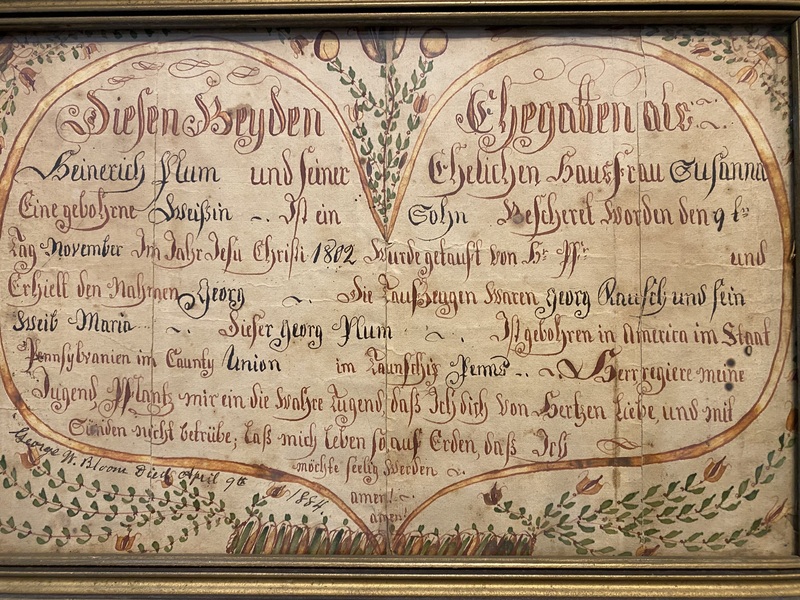 Diesen Beyden Ehegatten als
Heinerich Plum und seiner Ehelichen Hausfrau Susanna
Eine gebohrne Weißin Ist ein Sohn Bescheret Worden den 9ts
Tag November Im Jahr Jesu Christi 1802 Wurde getauft von Hr Pfr und
Erhielt den Nahmen Georg Die Taufzeugen Waren Georg Rausch und sein
Weib Maria Dieser Georg Plum Ist gebohren in America im Staat
Pennsylvanien im Caunty Union im Taunschip Penns Herr regiere meine
Jugend, Pflantz mir ein die Wahre Tugend, daß Ich dich Von Hertzen Liebe, und mit
Sünden nicht betrübe; Laß mich Leben so auf Erden, daß Ich
möchte seelig werden
amen!
amen!
George W. Bloone Died April 9th
1884.